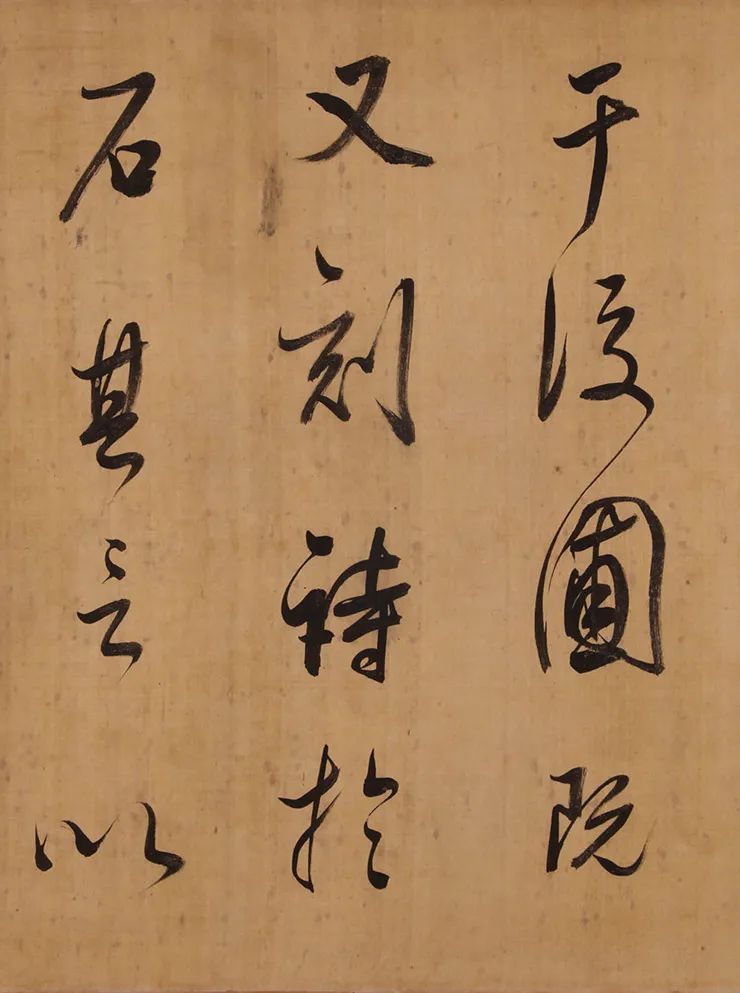 于後圃既
又刻詩於
石其言以